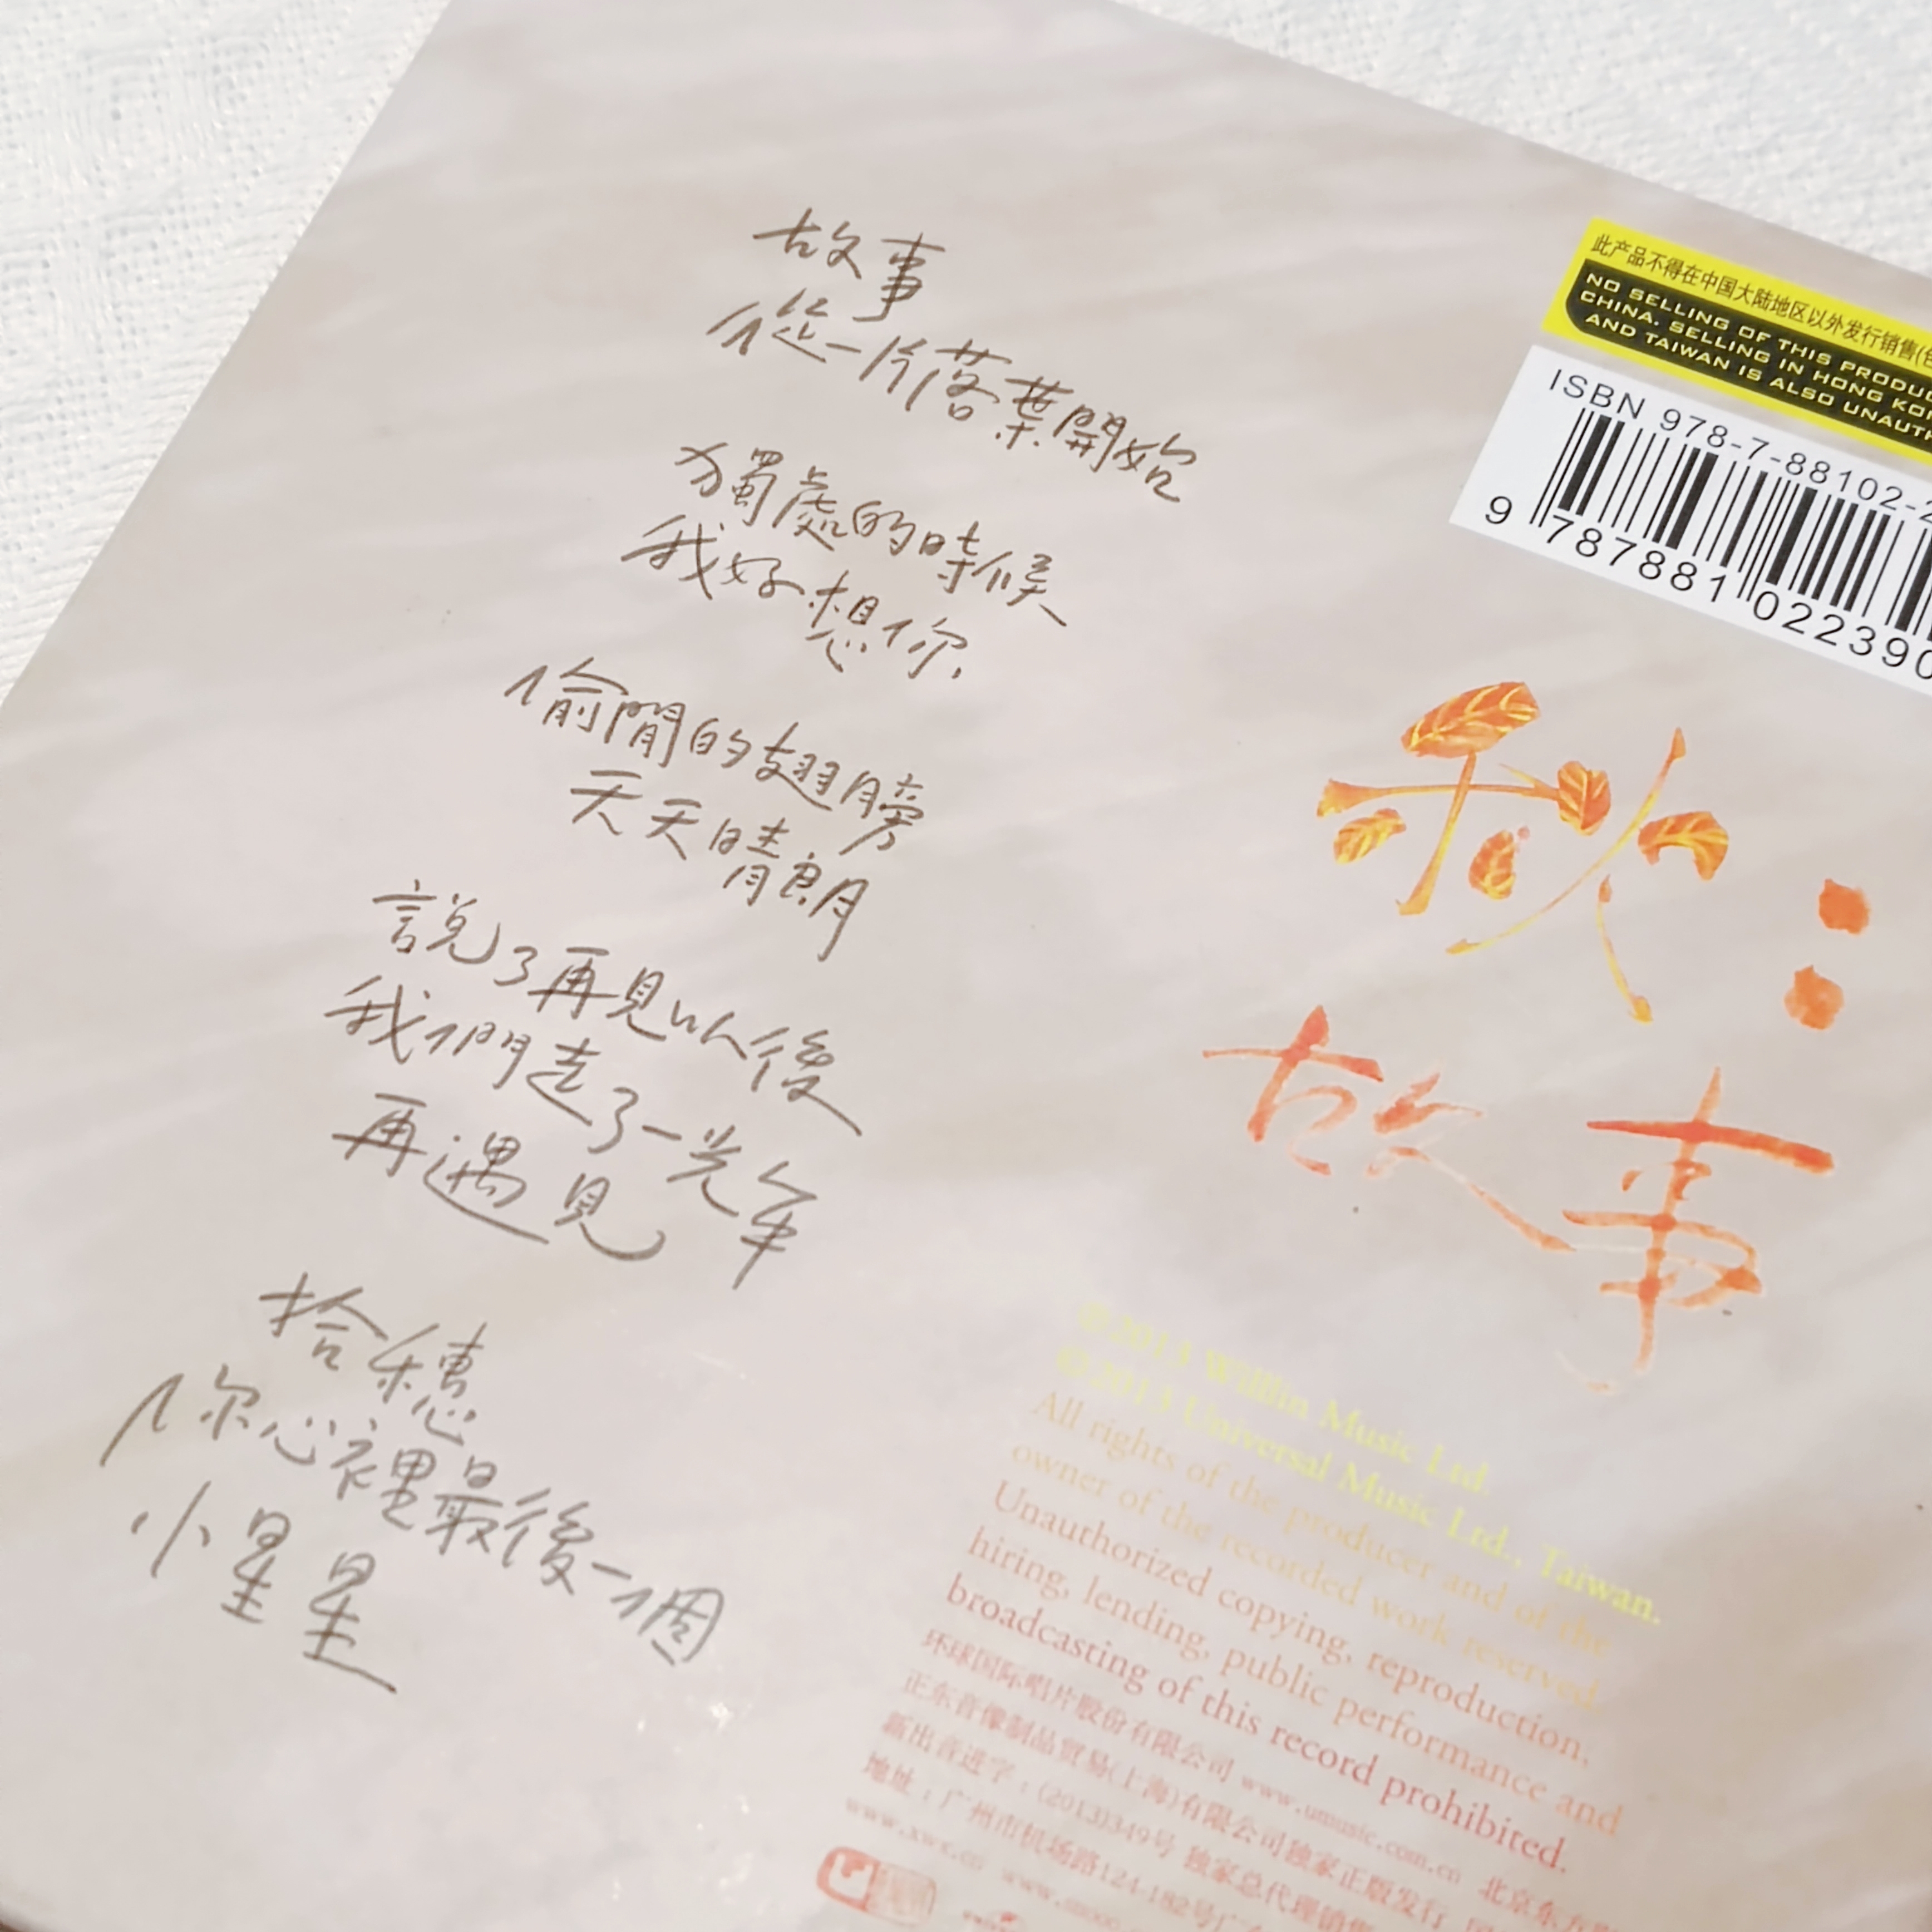 故事
從一片落葉開始
獨處的時候
我好想你
偷閒的翅膀
天天晴朗
說了再見以後
我們走了一光年
再遇見
拾穗
你心裡最後一個
小星星
此产品不得在中国大陆地区以外发行销售(包
NO SELLING OF THIS PRODUC
CHINA. SELLING IN HONG KO
AND TAIWAN IS ALSO UNAUTH
ISBN 978-7-88102-2
9 787881 022390
秋:
故事
℗2013 Willlin Music Ltd.
©2013 Universal Music Ltd., Taiwan.
All rights of the producer and of the
owner of the recorded work reserved.
Unauthorized copying, reproduction,
hiring, lending, public performance and
broadcasting of this record prohibited.
环球国际唱片股份有限公司 www.umusic.com.cn 北京东方
正东音像制品贸易(上海)有限公司独家正版发行
新出音进字：(2013)349号 独家总代理销售
地址：广州市机场路124-182号
www.xwc.cn